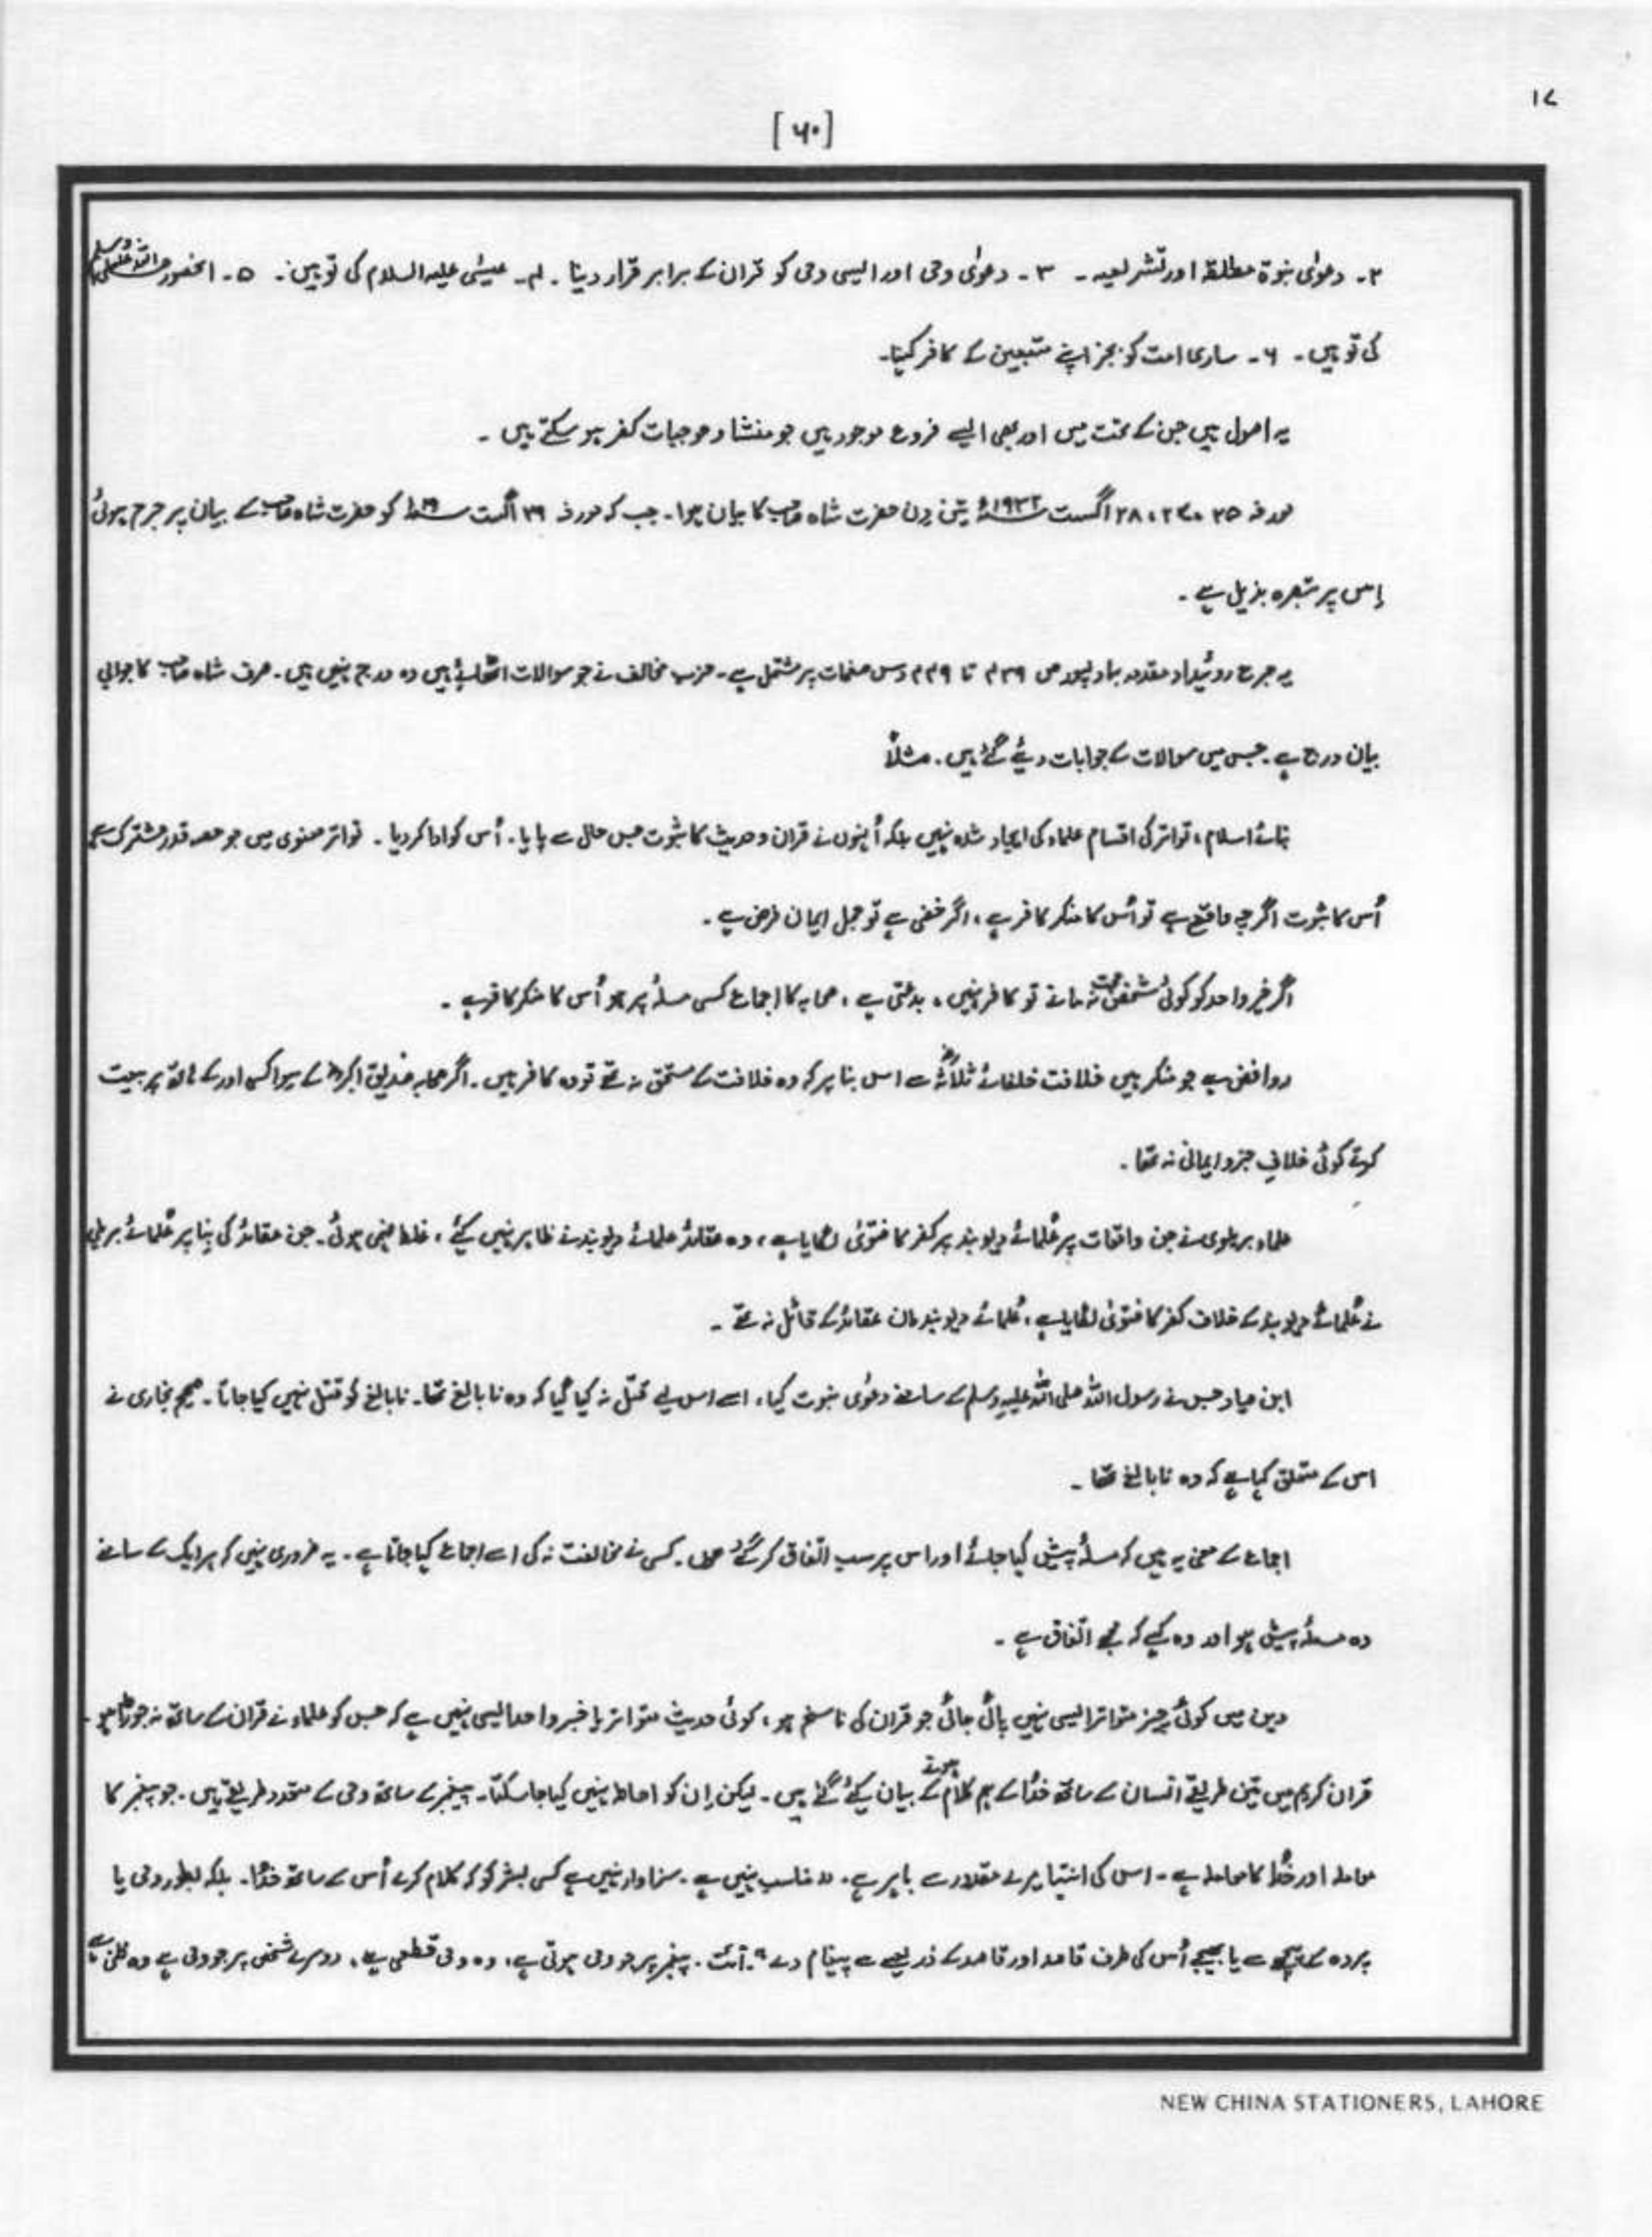 ۱۷
[۶۰]
۲۔ دعوٰی نبوۃ مطلقہ اور تشریعیہ ۔ ۳۔ دعوٰی وحی اور ایسی وحی کو قران کے برابر قرار دینا ۔ ۴۔ عیسٰی علیہ السلام کی توہین ۔ ۵۔ انحضور صلی اللہ علیہ وسلم
کی توہین ۔ ۶۔ ساری امت کو بجز اپنے متبعین کے کافر کہنا ۔
یہ اصول ہیں جن کے تحت میں اور بھی ایسے فروع موجود ہیں جو منشاء و موجبات کفر ہو سکتے ہیں ۔
مورخہ ۲۵، ۲۷، ۲۸ اگست ۱۹۳۲ء تین دن حضرت شاہ صاحب کا بیان ہوا ۔ جب کہ مورخہ ۲۹ اگست کو حضرت شاہ صاحب کے بیان پر جرح ہوئی
اس پر تبصرہ بذیل ہے ۔
یہ جرح روئیداد مقدمہ بہاولپور ص ۴۳۹ تا ۴۴۹ دس صفحات پر مشتمل ہے ۔ حزب مخالف نے جو سوالات اٹھائے ہیں وہ درج نہیں ہیں ۔ صرف شاہ صاحب کا جوابی
بیان درج ہے ۔ جس میں سوالات کے جوابات دیئے گئے ہیں ۔ مثلاً
بنائے اسلام، تواتر کی اقسام علماء کی ایجاد شدہ نہیں بلکہ اُنہوں نے قران و حدیث کا ثبوت جس حال سے پایا ۔ اُس کو ادا کر دیا ۔ تواتر معنوی میں جو حصہ قدر مشترک ہے
اُس کا ثبوت اگرچہ واضح ہے تو اُس کا منکر کافر ہے، اگر خفی ہے تو مجمل ایمان فرض ہے ۔
اگر خبر واحد کو کوئی شخص حجت نہ مانے تو کافر نہیں، بدعتی ہے، صحابہ کا اجماع کسی مسلہُ پر ہو اُس کا منکر کافر ہے ۔
روافض جو منکر ہیں خلافت خلفائے ثلاثہؓ سے اس بنا پر کہ وہ خلافت کے مستحق نہ تھے تو وہ کافر ہیں ۔ اگر صحابہ صدیق اکبرؓ کے سوا کسی اور کے ہاتھ پر بیعت
کرتے کوئی خلافِ جزو ایمانی نہ تھا ۔
علماء بریلوی نے جن واقعات پر عُلمائے دیوبند پر کفر کا فتوٰی لگایا ہے، وہ عقائد علمائے دیوبند نے ظاہر نہیں کیئے، غلط فہمی ہوئی ۔ جن عقائد کی بِنا پر عُلمائے بریلی
نے عُلمائے دیوبند کے خلاف کفر کا فتوٰی لگایا ہے، عُلمائے دیوبند ان عقائد کے قائل نہ تھے ۔
ابن صیاد جس نے رسول اللہ صلی اللہ علیہ وسلم کے سامنے دعوٰی نبوت کیا، اسے اس لیے قتل نہ کیا گیا کہ وہ نابالغ تھا ۔ نابالغ کو قتل نہیں کیا جاتا ۔ صحیح بخاری نے
اس کے متعلق کہا ہے کہ وہ نابالغ تھا ۔
اجماع کے معنی یہ ہیں کہ مسلہُ پیش کیا جائے اور اس پر سب اتفاق کر گئے ہوں ۔ کسی نے مخالفت نہ کی اسے اجماع کہا جاتا ہے ۔ یہ ضروری نہیں کہ ہر ایک کے سامنے
وہ مسلہُ پیش ہو اور وہ کہے کہ مجھے اتفاق ہے ۔
دین میں کوئی چیز متواتر ایسی نہیں پائی جاتی جو قران کی ناسخ ہو، کوئی حدیث متواتر یا خبر واحد ایسی نہیں ہے کہ جس کو علماء نے قران کے ساتھ نہ جوڑا ہو ۔
قران کریم میں تین طریقے انسان کے ساتھ خُدا کے ہم کلام ہونے کے بیان کیئے گئے ہیں ۔ لیکن اِن کو احاطہ نہیں کیا جا سکتا ۔ پیغمبر کے ساتھ وحی کے متعدد طریقے ہیں ۔ جو پیغمبر کا
معاملہ اور خُدا کا معاملہ ہے ۔ اس کی انتہا میرے مقدور سے باہر ہے ۔ مناسب نہیں ہے ۔ سزاوار نہیں ہے کسی بشر کو کہ کلام کرے اُس کے ساتھ خُدا ۔ بلکہ بطور وحی یا
پردہ کے پیچھے سے یا بھیجے اُس کی طرف قاصد اور قاصد کے ذریعے سے پیغام دے" ۔ آئت ۔ پیغمبر پر جو وحی ہوتی ہے، وہ وحی قطعی ہے، دوسرے شخص پر جو وحی ہے وہ ظنی
NEW CHINA STATIONERS, LAHORE